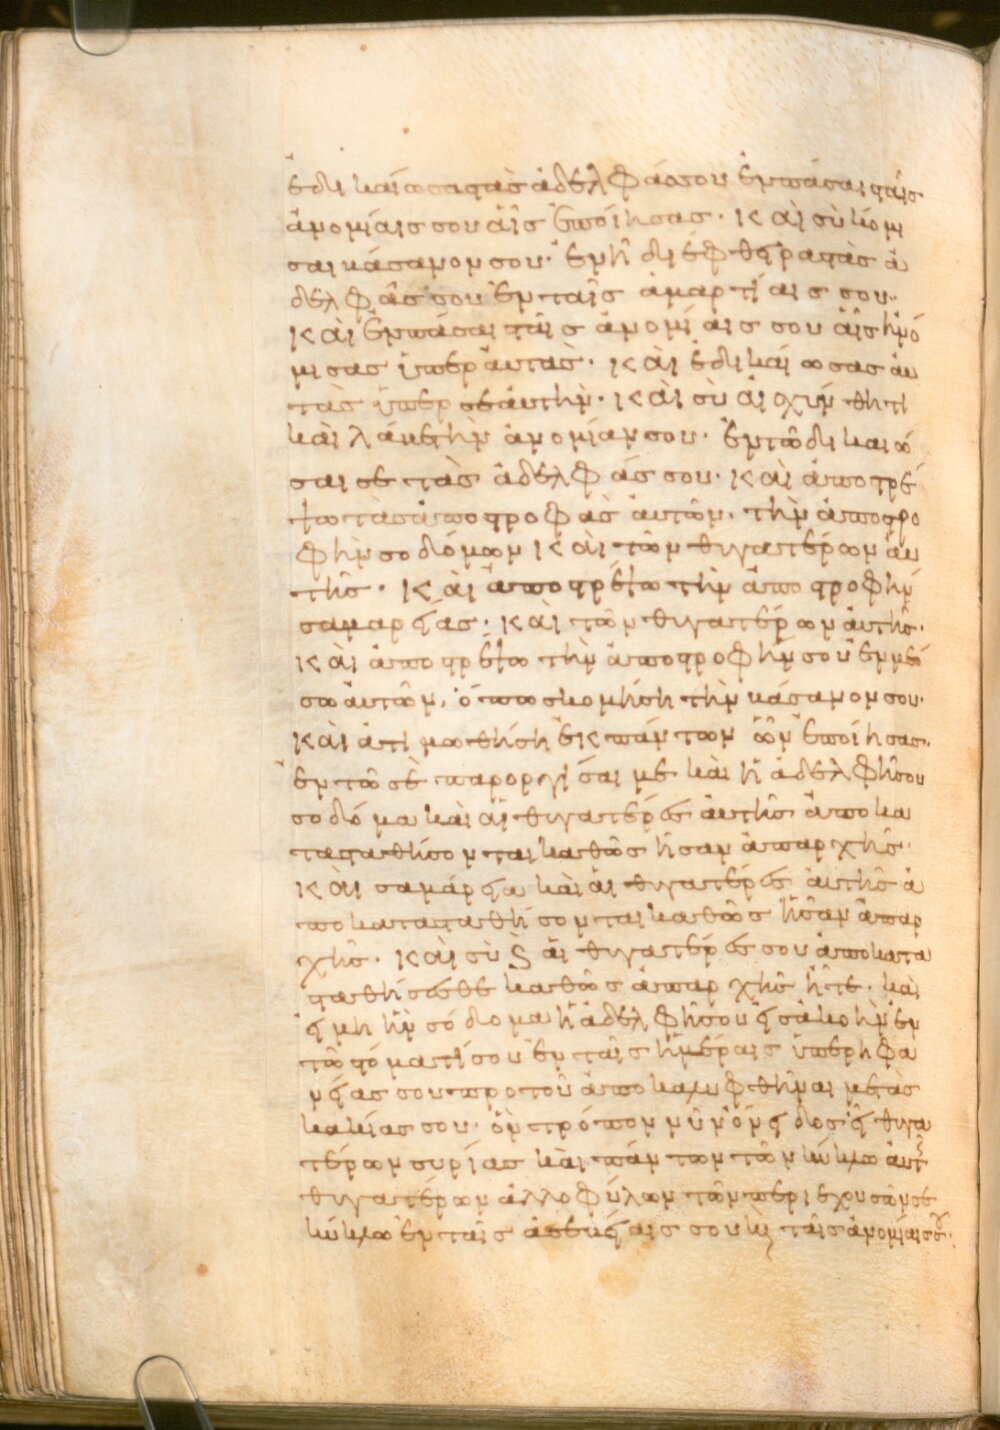 ἐδικαίωσας τὰς ἀδελφάς σου ἐν πάσαις ταῖς
ἀνομίαις σου αἷς ἐποίησας· καὶ σὺ κόμι
σαι βάσανον σου· ἐν ᾗ διέφθειρας τὰς ἀ
δελφάς σου ἐν ταῖς ἁμαρτίαις σου·
καὶ ἐν πάσαι ταῖς ἀνομίαις σου αἷς ἠνό
μισας ὑπὲρ αὐτάς· καὶ ἐδικαίωσας αὐ
τὰς ὑπὲρ σεαυτήν· καὶ σὺ αἰσχύνθητι
καὶ λάβε τὴν ἀνομίαν σου· ἐν τῶ δικαιῶ
σαι σε τὰς ἀδελφάς σου· καὶ ἀποστρέ
ψω τὰς ἀποστροφὰς αὐτῶν, τὴν ἀποστρο
φὴν σοδόμων καὶ τῶν θυγατέρων αὐ
τῆς· καὶ ἀποστρέψω τὴν ἀποστροφὴν
σαμαρείας· καὶ τῶν θυγατέρων αὐτῆς·
καὶ ἀποστρέψω τὴν ἀποστροφήν σου ἐν μέ
σω αὐτῶν, ὅπως κομήση τὴν βάσανον σου·
καὶ ἀτιμωθήση ἐκ πάντων ὧν ἐποίησας·
ἐν τῶ σὲ παροργίσαι με καὶ ἡ ἀδελφή σου
σοδόμα καὶ αἱ θυγατέρες αὐτῆς ἀποκα
τασταθήσονται καθὼς ἦσαν ἀπαρχῆς·
καὶ σαμάρεια καὶ αἱ θυγατέρες αὐτῆς ἀ
ποκατασταθήσονται καθὼς ἦσαν ἀπαρ
χῆς· καὶ σὺ ϗ αἱ θυγατέρες σου ἀποκατα
σταθήσεσθε καθὼς ἀπαρχῆς ἦτε· καὶ
εἰ μὴ ἦν σόδομα ἡ ἀδελφή σου εἰς ἀκοὴν ἐν
τῶ στόματί σου ἐν ταῖς ἡμέραις ὑπερηφα
νείας σου προτοῦ ἀποκαλυφθῆναι με τὰς
κακίας σου· ὃν τρόπον νῦν ὄνειδος εἶ θυγα
τέρων συρίας καὶ πάντων τῶν κύκλω αὐτῆς
θυγατέρων ἀλλοφύλων τῶν περιεχουσῶν σε
κύκλω ἐν ταῖς ἀσεβείαις σου ϗ ταῖς ἀνομίαις σου·